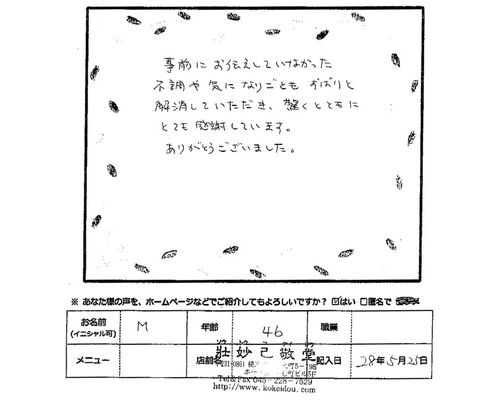 事前にお伝えしていなかった
不調や気になりごとも ずばりと
解消していただき、驚くとともに
とても感謝しています。
ありがとうございました。
※ あなた様の声を、ホームページなどでご紹介してもよろしいですか？ ☑はい □匿名で
お名前 (イニシャル可) M 年齢 46 職業
メニュー 店舗名 壯妙己敬堂 記入日 28年5月25日
Tel&Fax 045-228-7529
http://www.kokeidou.com/